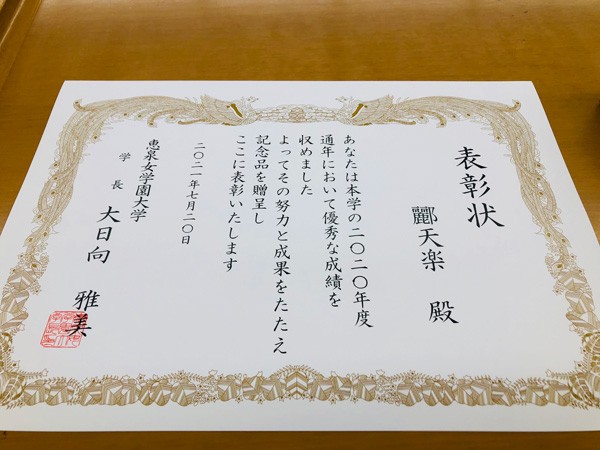 表彰状
酈天楽 殿
あなたは本学の二〇二〇年度
通年において優秀な成績を
収めました
よってその努力と成果をたたえ
記念品を贈呈し
ここに表彰いたします
二〇二一年七月二〇日
恵泉女学園大学
学長 大日向 雅美